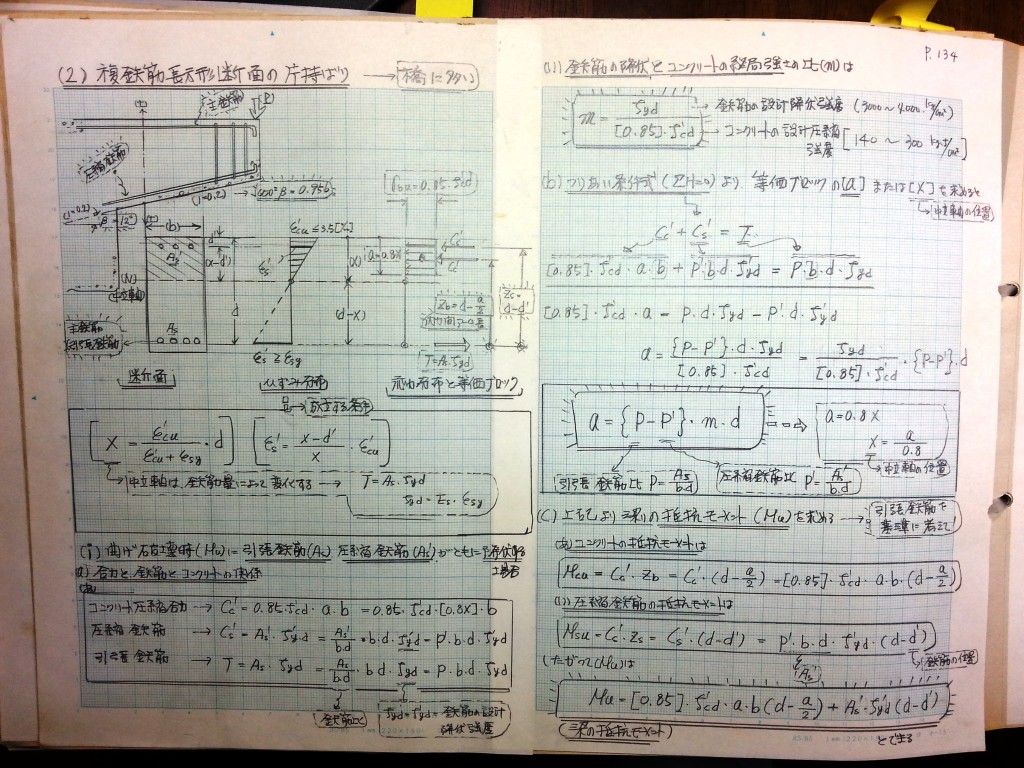 (2) 複鉄筋長方形断面の片持ばり → 橋に多い
主鉄筋
[P]
圧縮鉄筋
(1=0.2)
cos²β = 0.956
(1=0.2)
β = 12°
(b)
As'
As
d'
(x-d')
d
[N]
中立軸
主鉄筋
断面
ε'cu ≤ 3.5[‰]
ε's
(x)
(d-x)
ε's ≧ εsy
ひずみ分布
fbu = 0.85·f'cd
a=0.8x
Cs'
Cc'
Zb = d - a/2
Zs = d-d'
T = As·fyd
応力分布と等価ブロック
[x = ε'cu / (ε'cu + εsy) · d] [ε's = (x-d')/x · ε'cu]
中立軸は、鉄筋量によって変化する → T = As·fyd
fyd = Es·εsy
(i) 曲げ破壊時(Mu)に引張鉄筋(As) 圧縮鉄筋(As')がともに降伏する場合
a) 合力と、鉄筋とコンクリートの関係
(あ)
コンクリート圧縮合力 → Cc' = 0.85·f'cd·a·b = 0.85·f'cd·[0.8x]·b
圧縮鉄筋 → Cs' = As'·f'yd = As'/b·d · b·d·f'yd = P'·b·d·f'yd
引張鉄筋 → T = As·fyd = As/b·d · b·d·fyd = P·b·d·fyd
鉄筋比
fyd = f'yd = 鉄筋の設計降伏強度
P.134
(い) 鉄筋の降伏とコンクリートの終局強さの比(m)は
m = fyd / [0.85]·f'cd → 鉄筋の設計降伏強度 (3000〜4000 kgf/cm²)
→ コンクリートの設計圧縮強度 [140 〜 300 kgf/cm²]
(b) つりあい条件式 (ΣH=0) より 等価ブロックの[a] または[x]を求めると
中立軸の位置
Cc' + Cs' = T
[0.85]·f'cd·a·b + P'·b·d·f'yd = P·b·d·fyd
[0.85]·f'cd·a = P·d·fyd - P'·d·f'yd
a = {P-P'}·d·fyd / [0.85]·f'cd = fyd / [0.85]·f'cd · {P-P'}·d
a = {P-P'}·m·d ⇒ a = 0.8x
x = a/0.8
中立軸の位置
引張鉄筋比 P = As/b·d 圧縮鉄筋比 P' = As'/b·d
(C) 上記より 梁の抵抗モーメント(Mu)を求める → 引張鉄筋を基準に考えて!
(あ) コンクリートの抵抗モーメントは
Mcu = Cc'·Zb = Cc'·(d - a/2) = [0.85]·f'cd·a·b·(d - a/2)
(い) 圧縮鉄筋の抵抗モーメントは
Msu = Cs'·Zs = Cs'·(d-d') = P'·b·d·f'yd·(d-d')
(As')
鉄筋の位置
したがって(Mu)は
Mu = [0.85]·f'cd·a·b(d - a/2) + As'·f'yd(d-d')
(梁の抵抗モーメント)
とできる